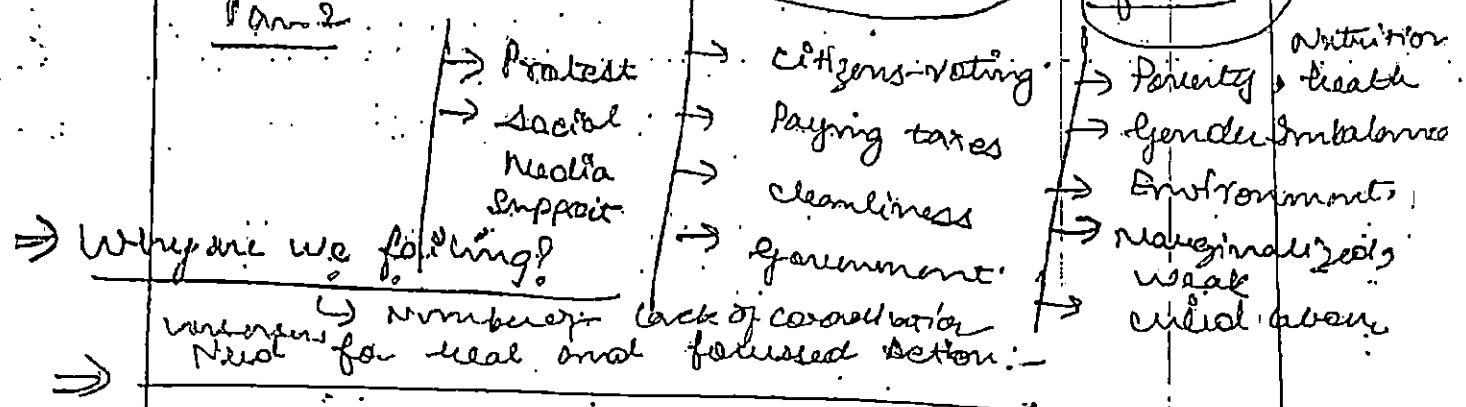 Para 2
→ Protest
→ Social
Media
Support
→ Citizens-voting
→ Paying taxes
→ cleanliness
→ Government
Nutrition
→ Poverty, health
→ Gender Imbalance
→ Environment,
→ Marginalized,
weak
→ child labour
⇒ Why are we failing?
↳ Number of lack of coordination
Need for real and focussed action:-
⇒